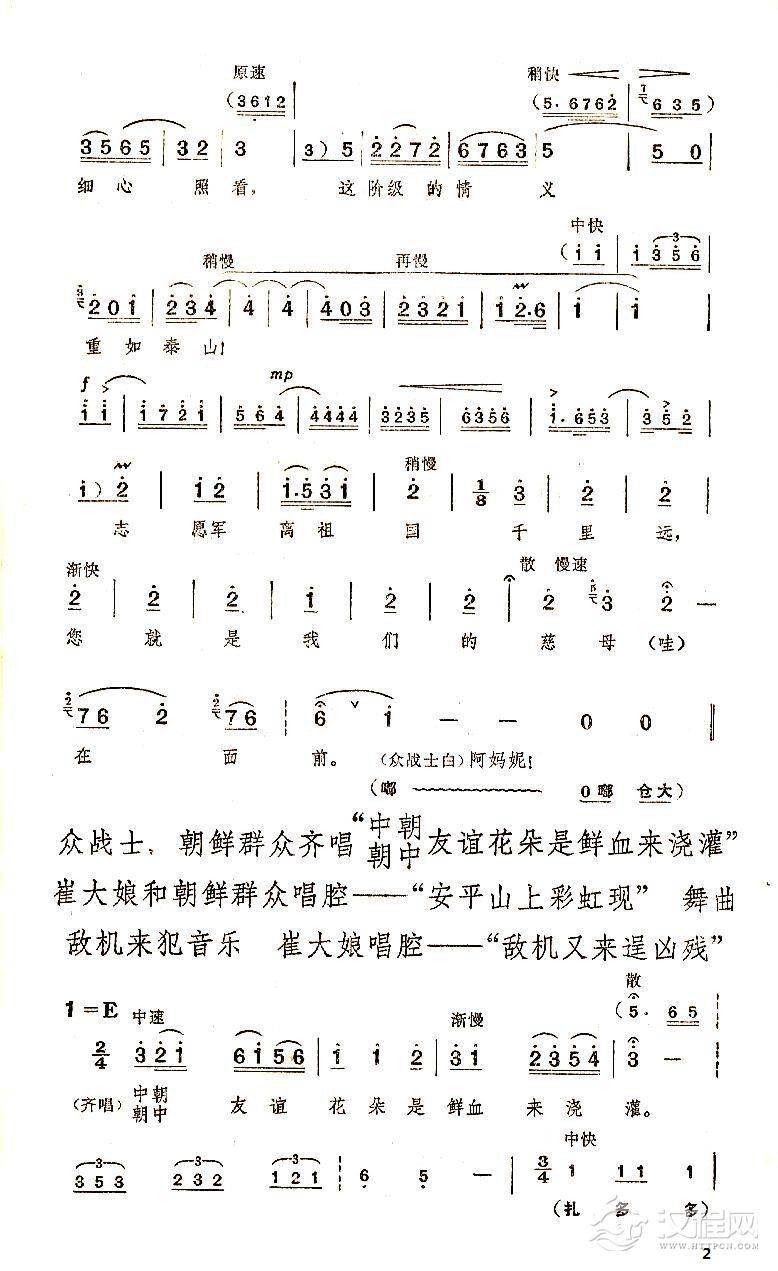 原速 稍快
(3612 (5.6762 7 635)
3565 32 3 3) 5 2272 6763 5 5 0
细心 照看, 这阶级的情 义
中快
(1 1 1356
稍慢 再慢
3 201 234 4 4 403 2321 12.6 1 1
重如泰山!
f mp
11 1721 564 4444 3235 6356 1.653 352
稍慢
1) 2 12 1.531 2 1/8 3 2 2
志 愿军 离祖 国 千 里 远,
渐快 散 慢速
2 2 2 1 2 2 3 2 —
您 就 是 我 们 的 慈 母(哇)
2 76 2 2 76 6 1 — — 0 0
在 面 前。(众战士白)阿妈妮!
(嘟 0嘟 仓大)
众战士、朝鲜群众齐唱“中朝友谊花朵是鲜血来浇灌”
朝中
崔大娘和朝鲜群众唱腔——“安平山上彩虹现” 舞曲
敌机来犯音乐 崔大娘唱腔——“敌机又来逞凶残”
散
1=E 中速 渐慢 (5. 65
2/4 321 6156 11 2 31 2354 3 —
(齐唱)中朝 友谊 花朵是鲜血 来浇 灌。
朝中
中快
353 232 121 6 5 — 3/4 1 11 1
(扎 多 多)
汉程网
HTTPCN.COM
2